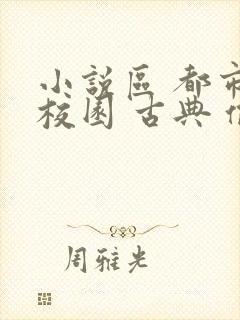 小說區 都市
校園 古典
周雅光